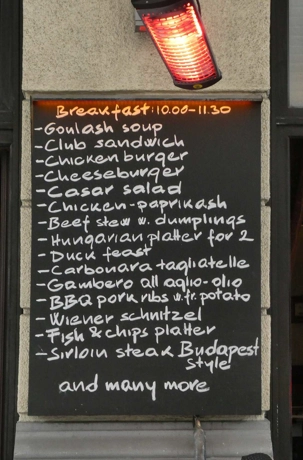 Breakfast: 10.00-11.30
- Goulash soup
- Club sandwich
- Chicken burger
- Cheeseburger
- Casar salad
- Chicken-paprikash
- Beef stew w. dumplings
- Hungarian platter for 2
- Duck feast
- Carbonara tagliatelle
- Gambero all aglio-olio
- BBQ pork ribs w. fr. potato
- Wiener schnitzel
- Fish & chips platter
- Sirloin steak Budapest
style
and many more